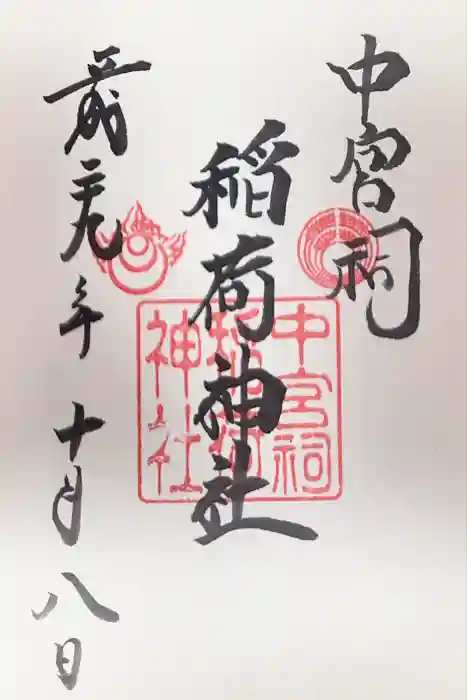 中宮祠
稲荷神社
元年十月八日
中宮祠
稲荷
神社